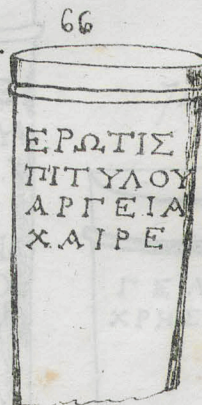 66
ΕΡΩΤΙΣ
ΠΙΤΥΛΟΥ
ΑΡΓΕΙΑ
ΧΑΙΡΕ